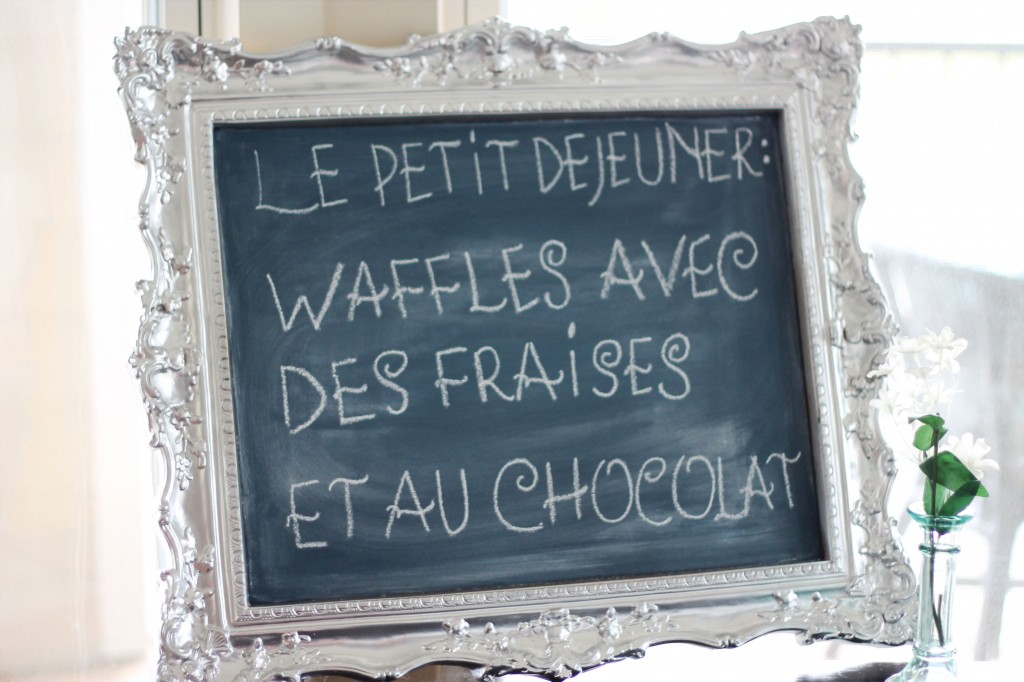 LE PETIT DEJEUNER:
WAFFLES AVEC
DES FRAISES
ET AU CHOCOLAT